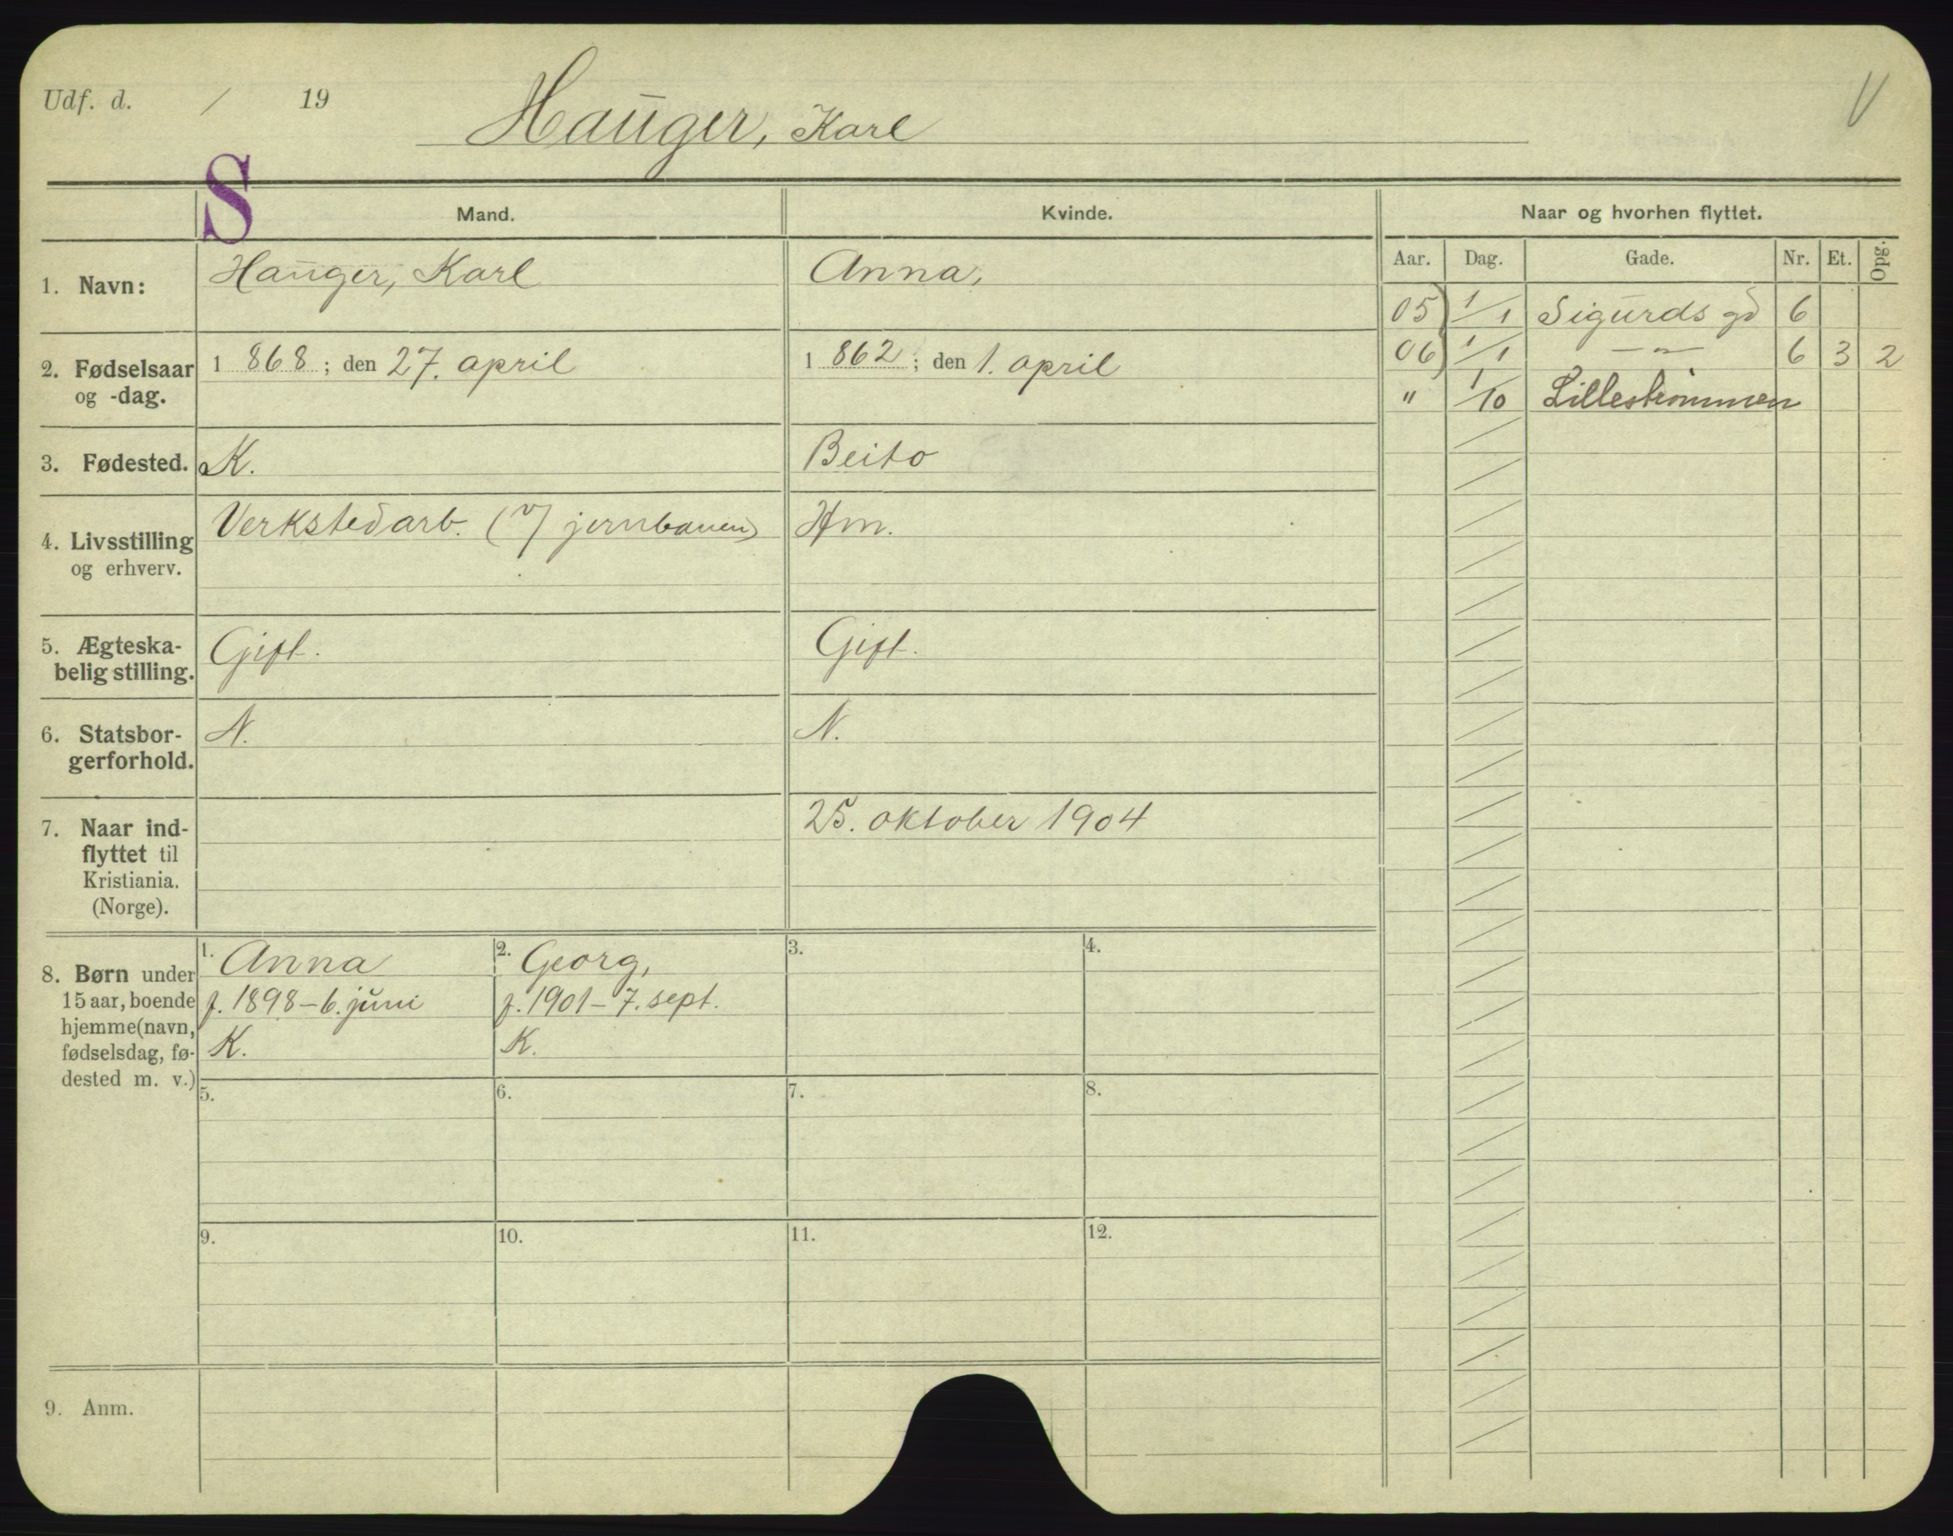 Udf. d. / 19
Hauger, Karl
V
S
Mand.
Kvinde.
Naar og hvorhen flyttet.
Aar. Dag. Gade. Nr. Et. Opg.
1. Navn:
Hauger, Karl
Anna,
05 1/1 Sigurds gd 6
06 1/1 —"— 6 3 2
" 1/10 Lillestrømmen
2. Fødselsaar
og -dag.
1 868; den 27. april
1 862; den 1. april
3. Fødested.
K.
Beito
4. Livsstilling
og erhverv.
Verkstedarb. (v/ jernbanen)
Hm.
5. Ægteska-
belig stilling.
Gift.
Gift.
6. Statsbor-
gerforhold.
N.
N.
7. Naar ind-
flyttet til
Kristiania.
(Norge).
25. oktober 1904
8. Børn under
15 aar, boende
hjemme(navn,
fødselsdag, fø-
dested m. v.)
1. Anna
f. 1898 – 6. juni
K.
2. Georg,
f. 1901 – 7. sept.
K.
3.
4.
5.
6.
7.
8.
9.
10.
11.
12.
9. Anm.